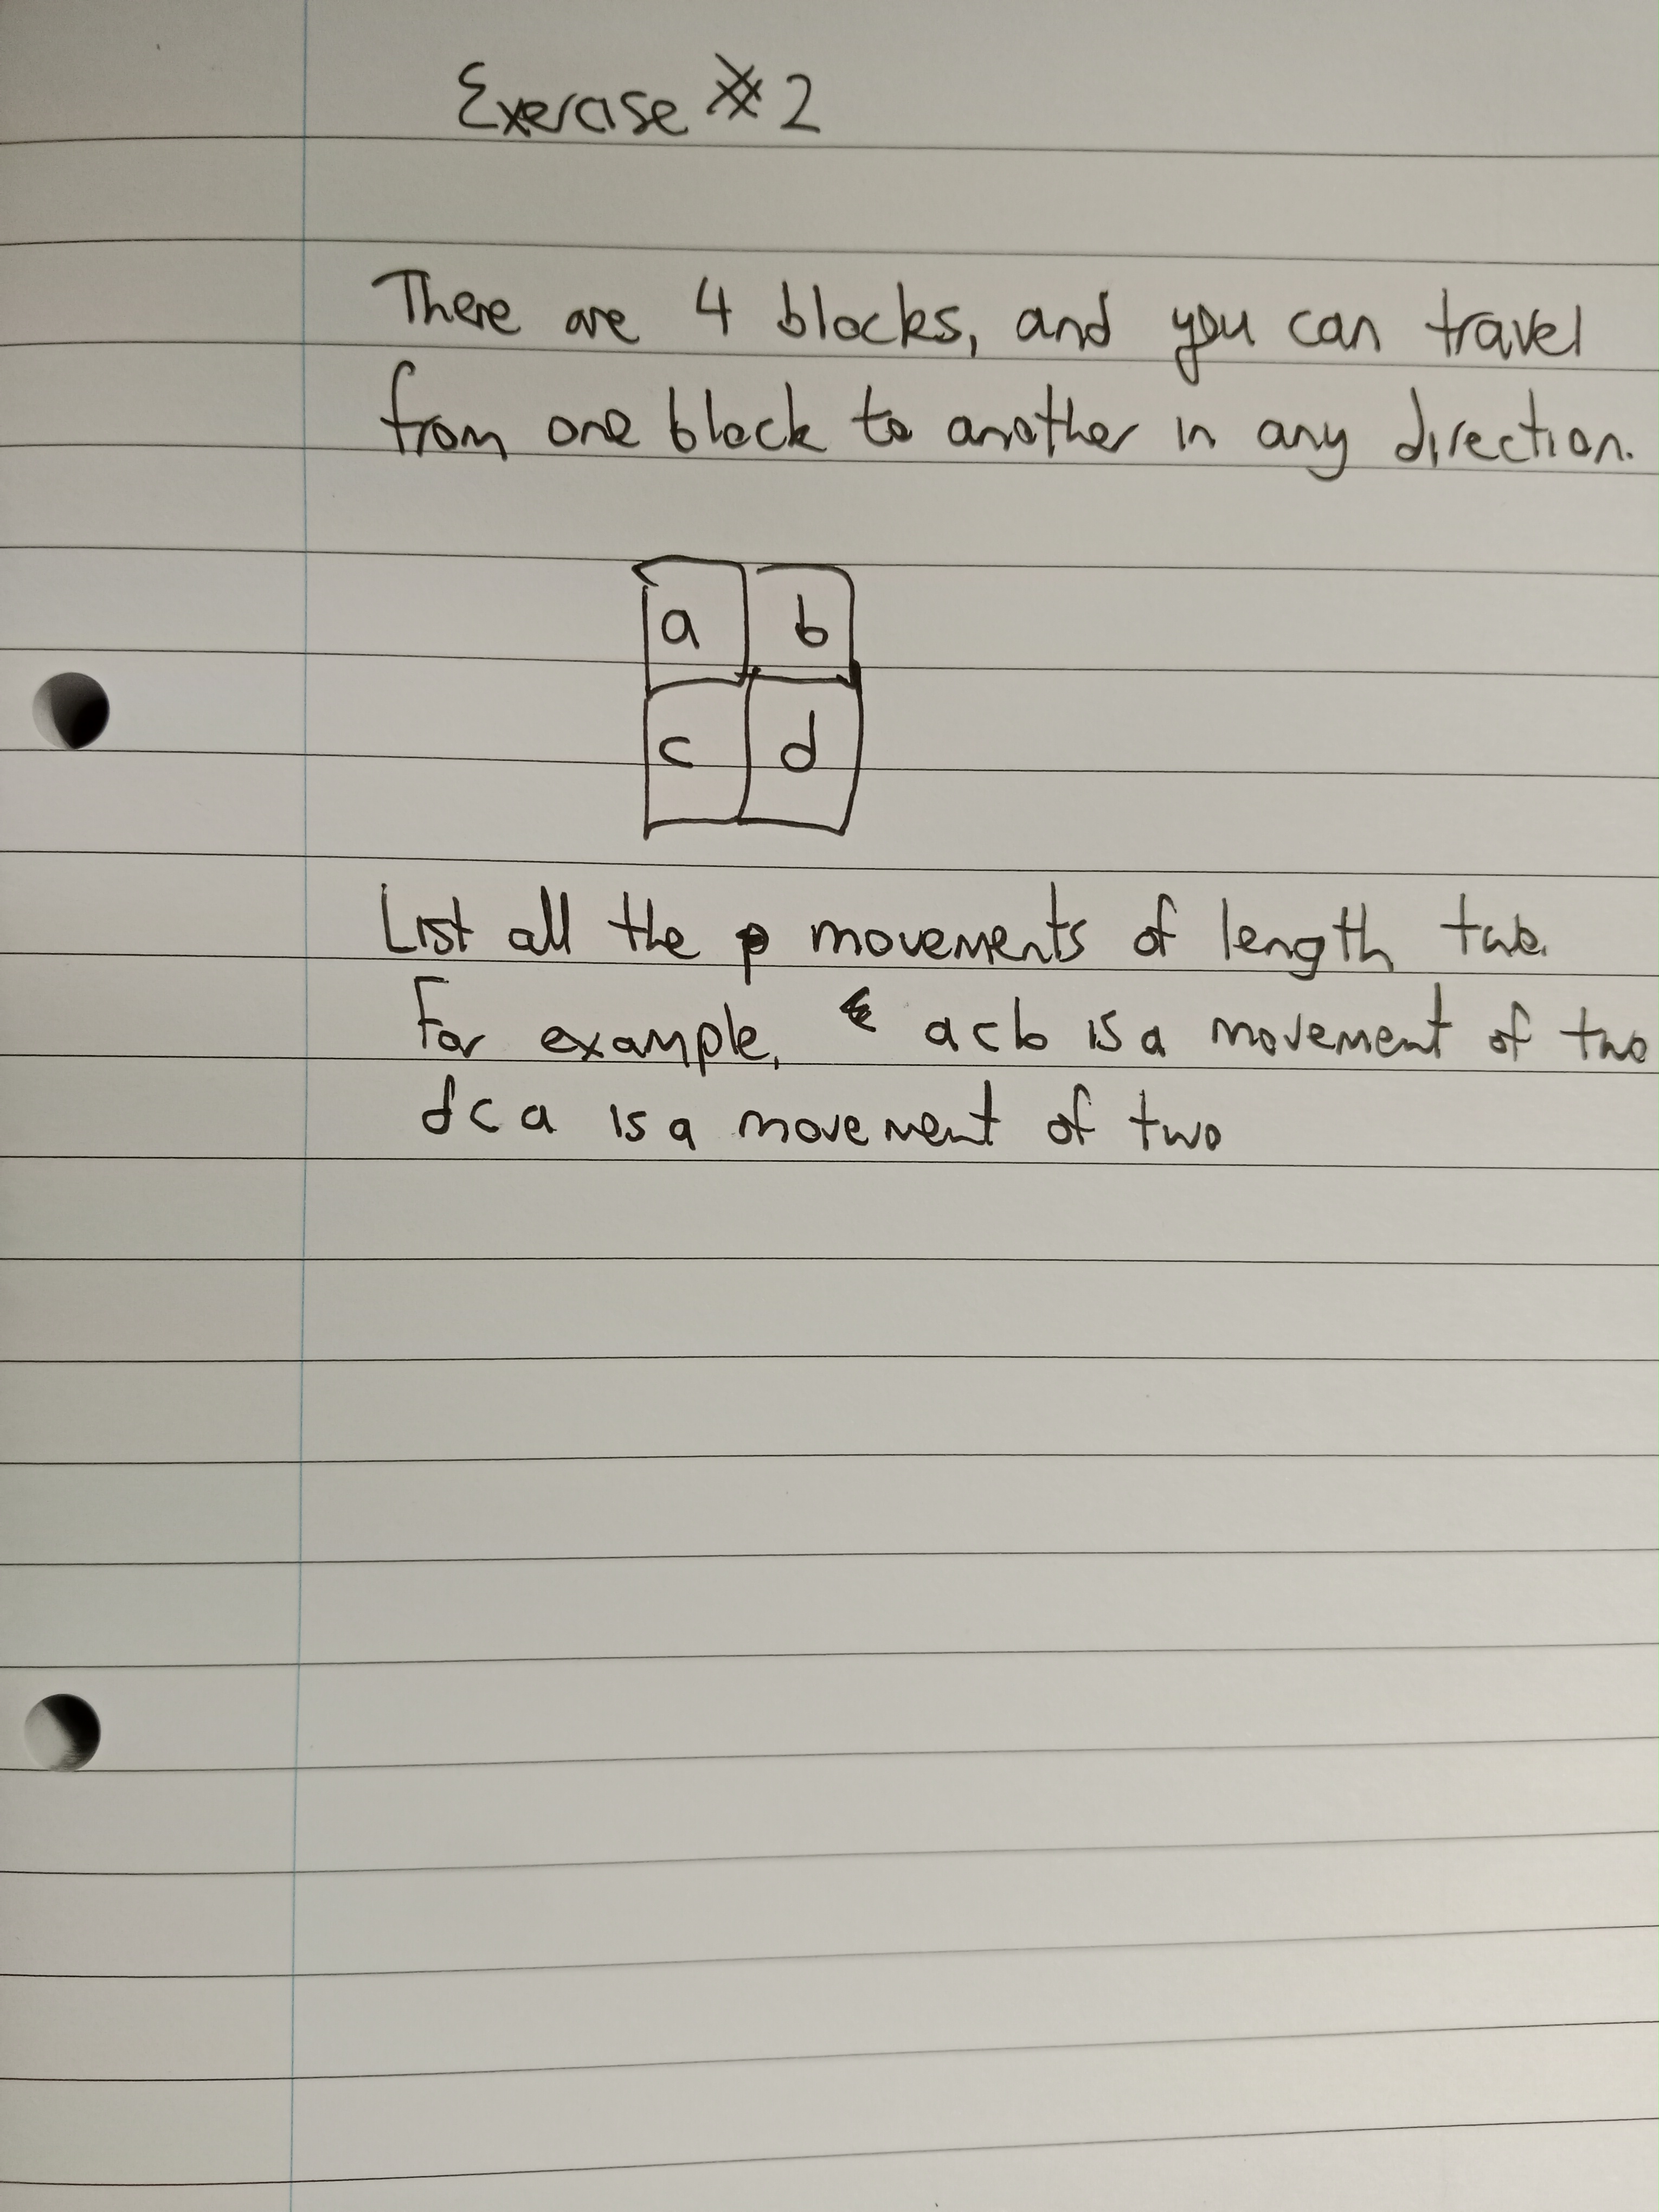 Exercise #2
There are 4 blocks, and you can travel
from one block to another in any direction.
a b
c d
List all the movements of length two.
For example, acb is a movement of two
dca is a movement of two